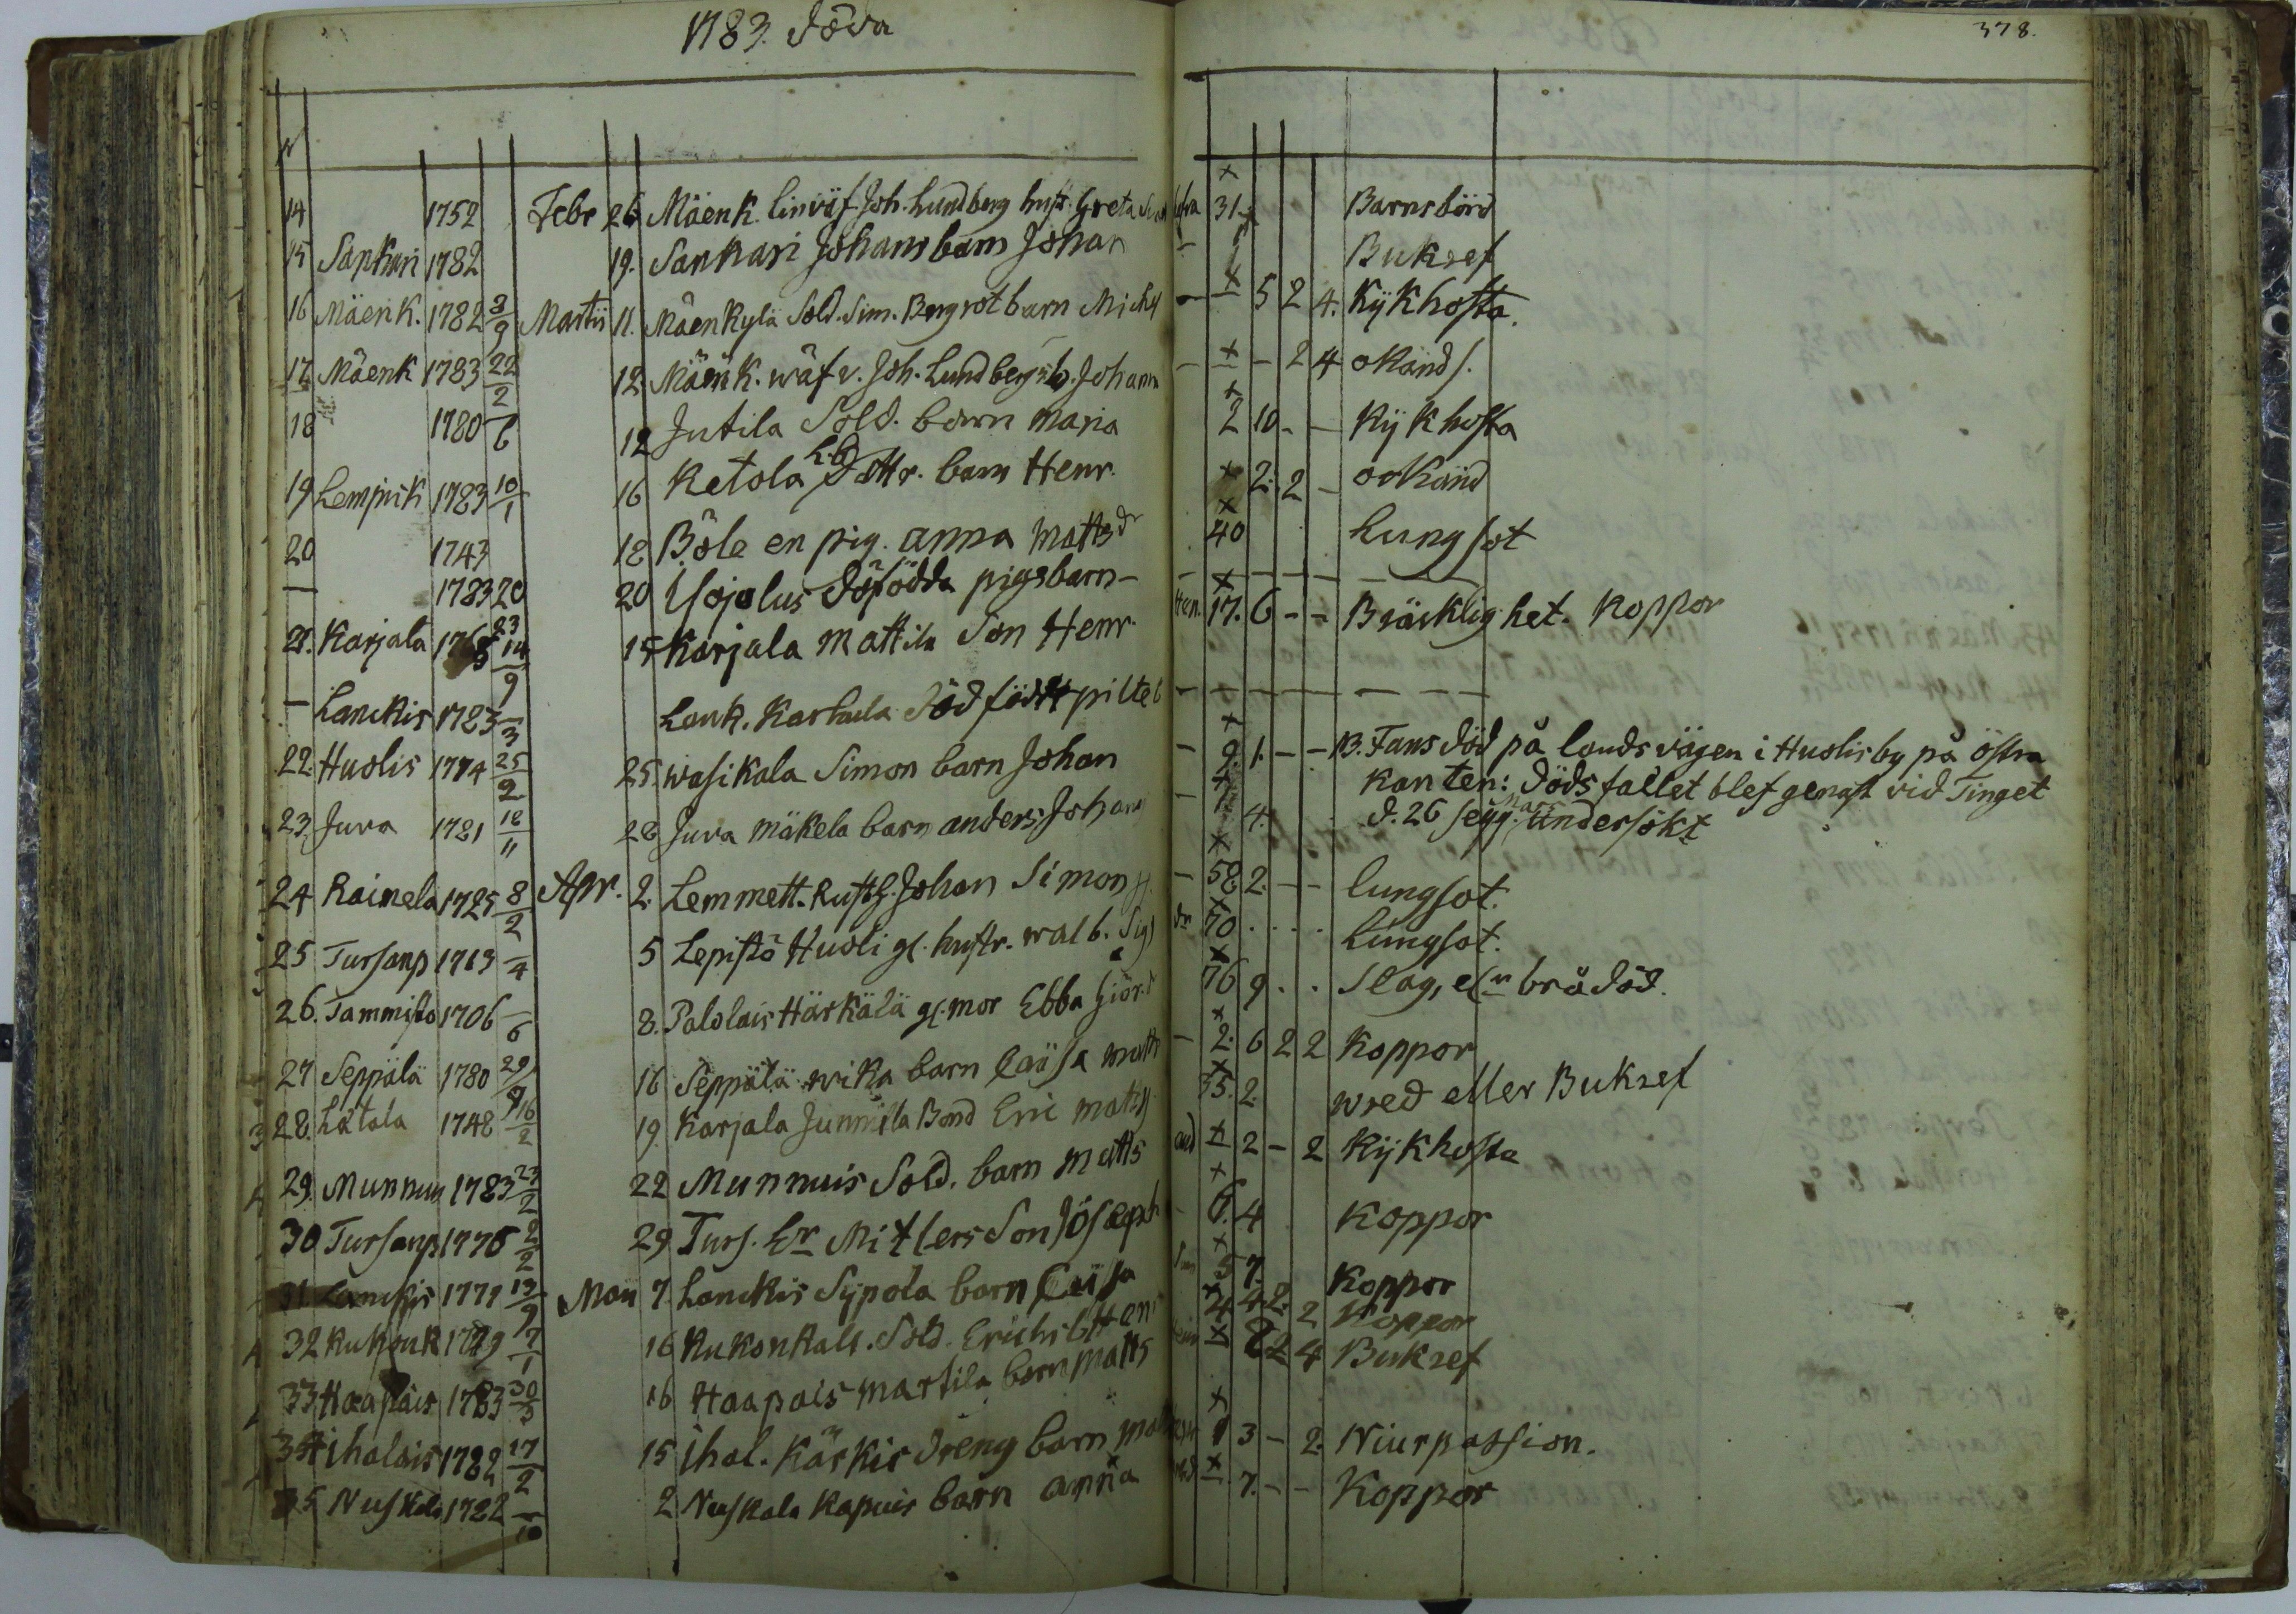 1783. Döda
378.
N
14 1752 Febr 26 Mäenk. linväf. Joh. Lundberg hust. Greta 31 Barnsbörd
15 Sankari 1782 19. Sankari Johans barn Johan - 1 Bukref
16 Mäenk. 1782 3/9 Martii 11. Mäenkylä Sold. Sim. Bergrot barn Michel - - 5 2 4. Kykhosta.
17 Mäenk 1783 22/2 12. Mäenk. wäf v. Joh. Lundbergs b. Johann - - - 2 4 okänds.
18 1780 /6 12 Jutila Sold. barn Maria 2 10 - - Kykhosta
19 Lempois 1783 10/1 16 Ketola L.b. Dottr. barn Henr. 2. 2 - ookänd
20 1743 18 Böle en pig. Anna Mattsdr 40 Lungsot
— 1783 20 20 Isojolus döfödda pigebarn - - - - -
21. Karjala 1765 14/9 15 Karjala Mattila Son Henr. Hen. 17. 6 - - Bräcklighet. Koppor
— Lanckis 1783 —/3 Lank. Karhula Död född pilteb - - - - -
22. Huolis 1774 25/2 25. Wasikala Simon barn Johan - 9. 1. - - B. Fans död på landsvägen i Huolis by på östra
kanten: Dödsfallet blef genast vid Tinget
23. Juva 1781 18/11 28 Juva Mäkela barn Anders Johans - 1 4. d. 26 Mars undersökt
24 Raimela 1725 8/2 Apr. 2. Lemmett. Rusth. Johan Simonss. - 58 2. - - lungsot.
25 Tursanp 1713 —/4 5 Lepistö Huoli gl. hustr. Walb. Sig dr 70 . . . Lungsot.
26. Tammisto 1706 —/6 8. Palolais Härkälä gl. mor Ebba Giörsd 76 9 . . Slag, elr brådöd.
27 Seppälä 1780 29/9 16 Seppälä wika barn Caisa Matts - 2. 6 2 2 Koppor
28. Lätola 1748 16/2 19 Karjala Junnila Bond Eric Matss 35. 2. wred eller Bukref
29. Munnuis 1783 23/2 22 Munnuis Sold. barn Matts - 2 - 2 Kykhosta
30 Tursanp 1776 2/2 29 Turs. Er Mitlers Son Joseph - 6. 4 Koppor
31 Lanckis 1777 13/9 Maii 7. Lanckis Sypola barn Caisa 5 7. Koppor
32 Kukonk 1779 7/1 16 Kukonkall. Sold. Erichs b. Hen 4 4 2. 2 Koppor
33 Haapais 1783 30/3 16 Haapais Martila barn Matts - 2 4 Bukref
34 Ihalais 1782 17/2 15 Ihal. Kärkis dreng barn 1 3 - 2. Niurpassion.
35 Nuskala 1782 —/10 2 Nuskala Kapuis barn Anna - 7. - - Koppor